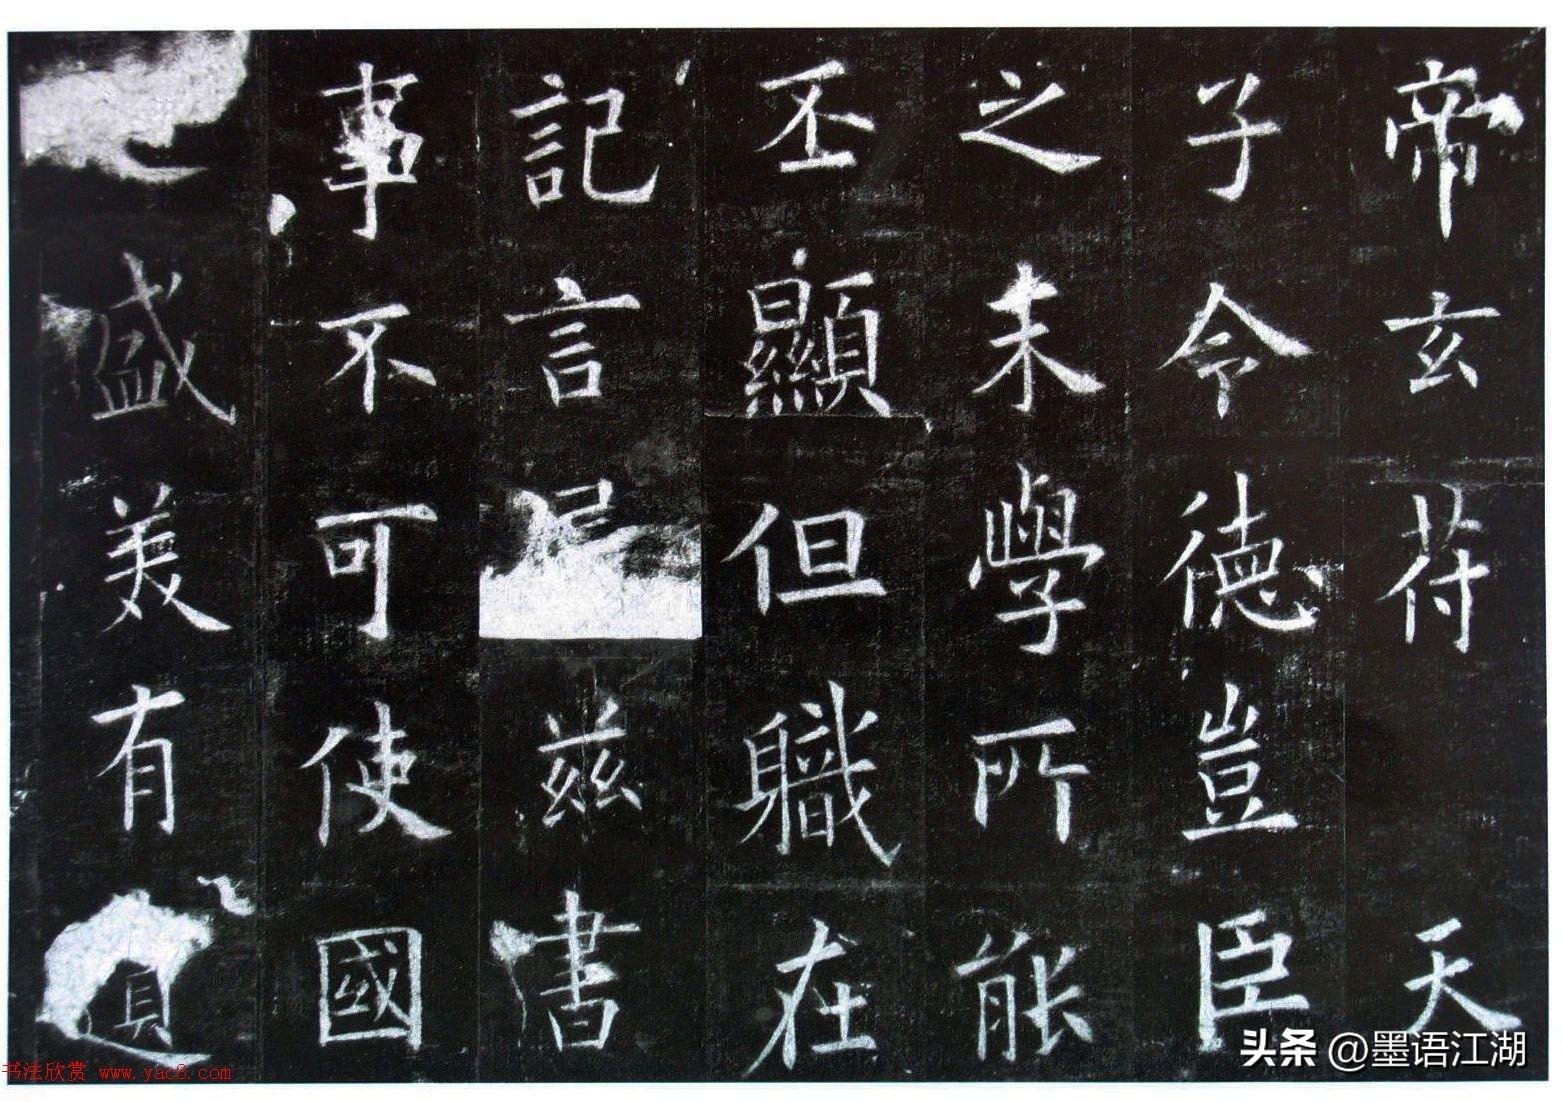 帝玄苻天
子令德豈臣
之末學所能
丕顯但職在
記言茲書
事不可使國
盛美有遺
头条 @墨语江湖
书法欣赏 www.yac8.com